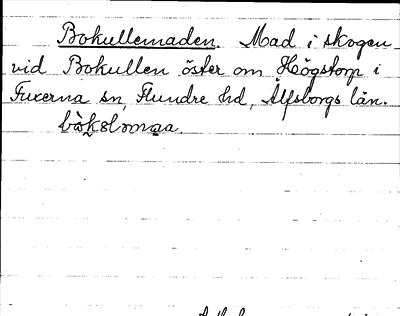 Bokullemaden. Mad i skogen
vid Bokullen öster om Högstorp i
Fuxerna sn, Flundre hd, Älfsborgs län.